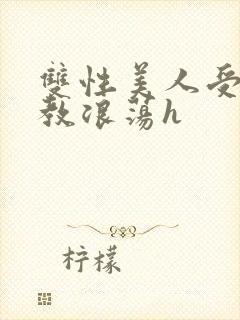 雙性美人受
教浪蕩h
柠檬